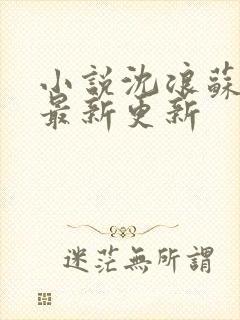 小說沈浪蘇
最新更新
迷茫無所謂